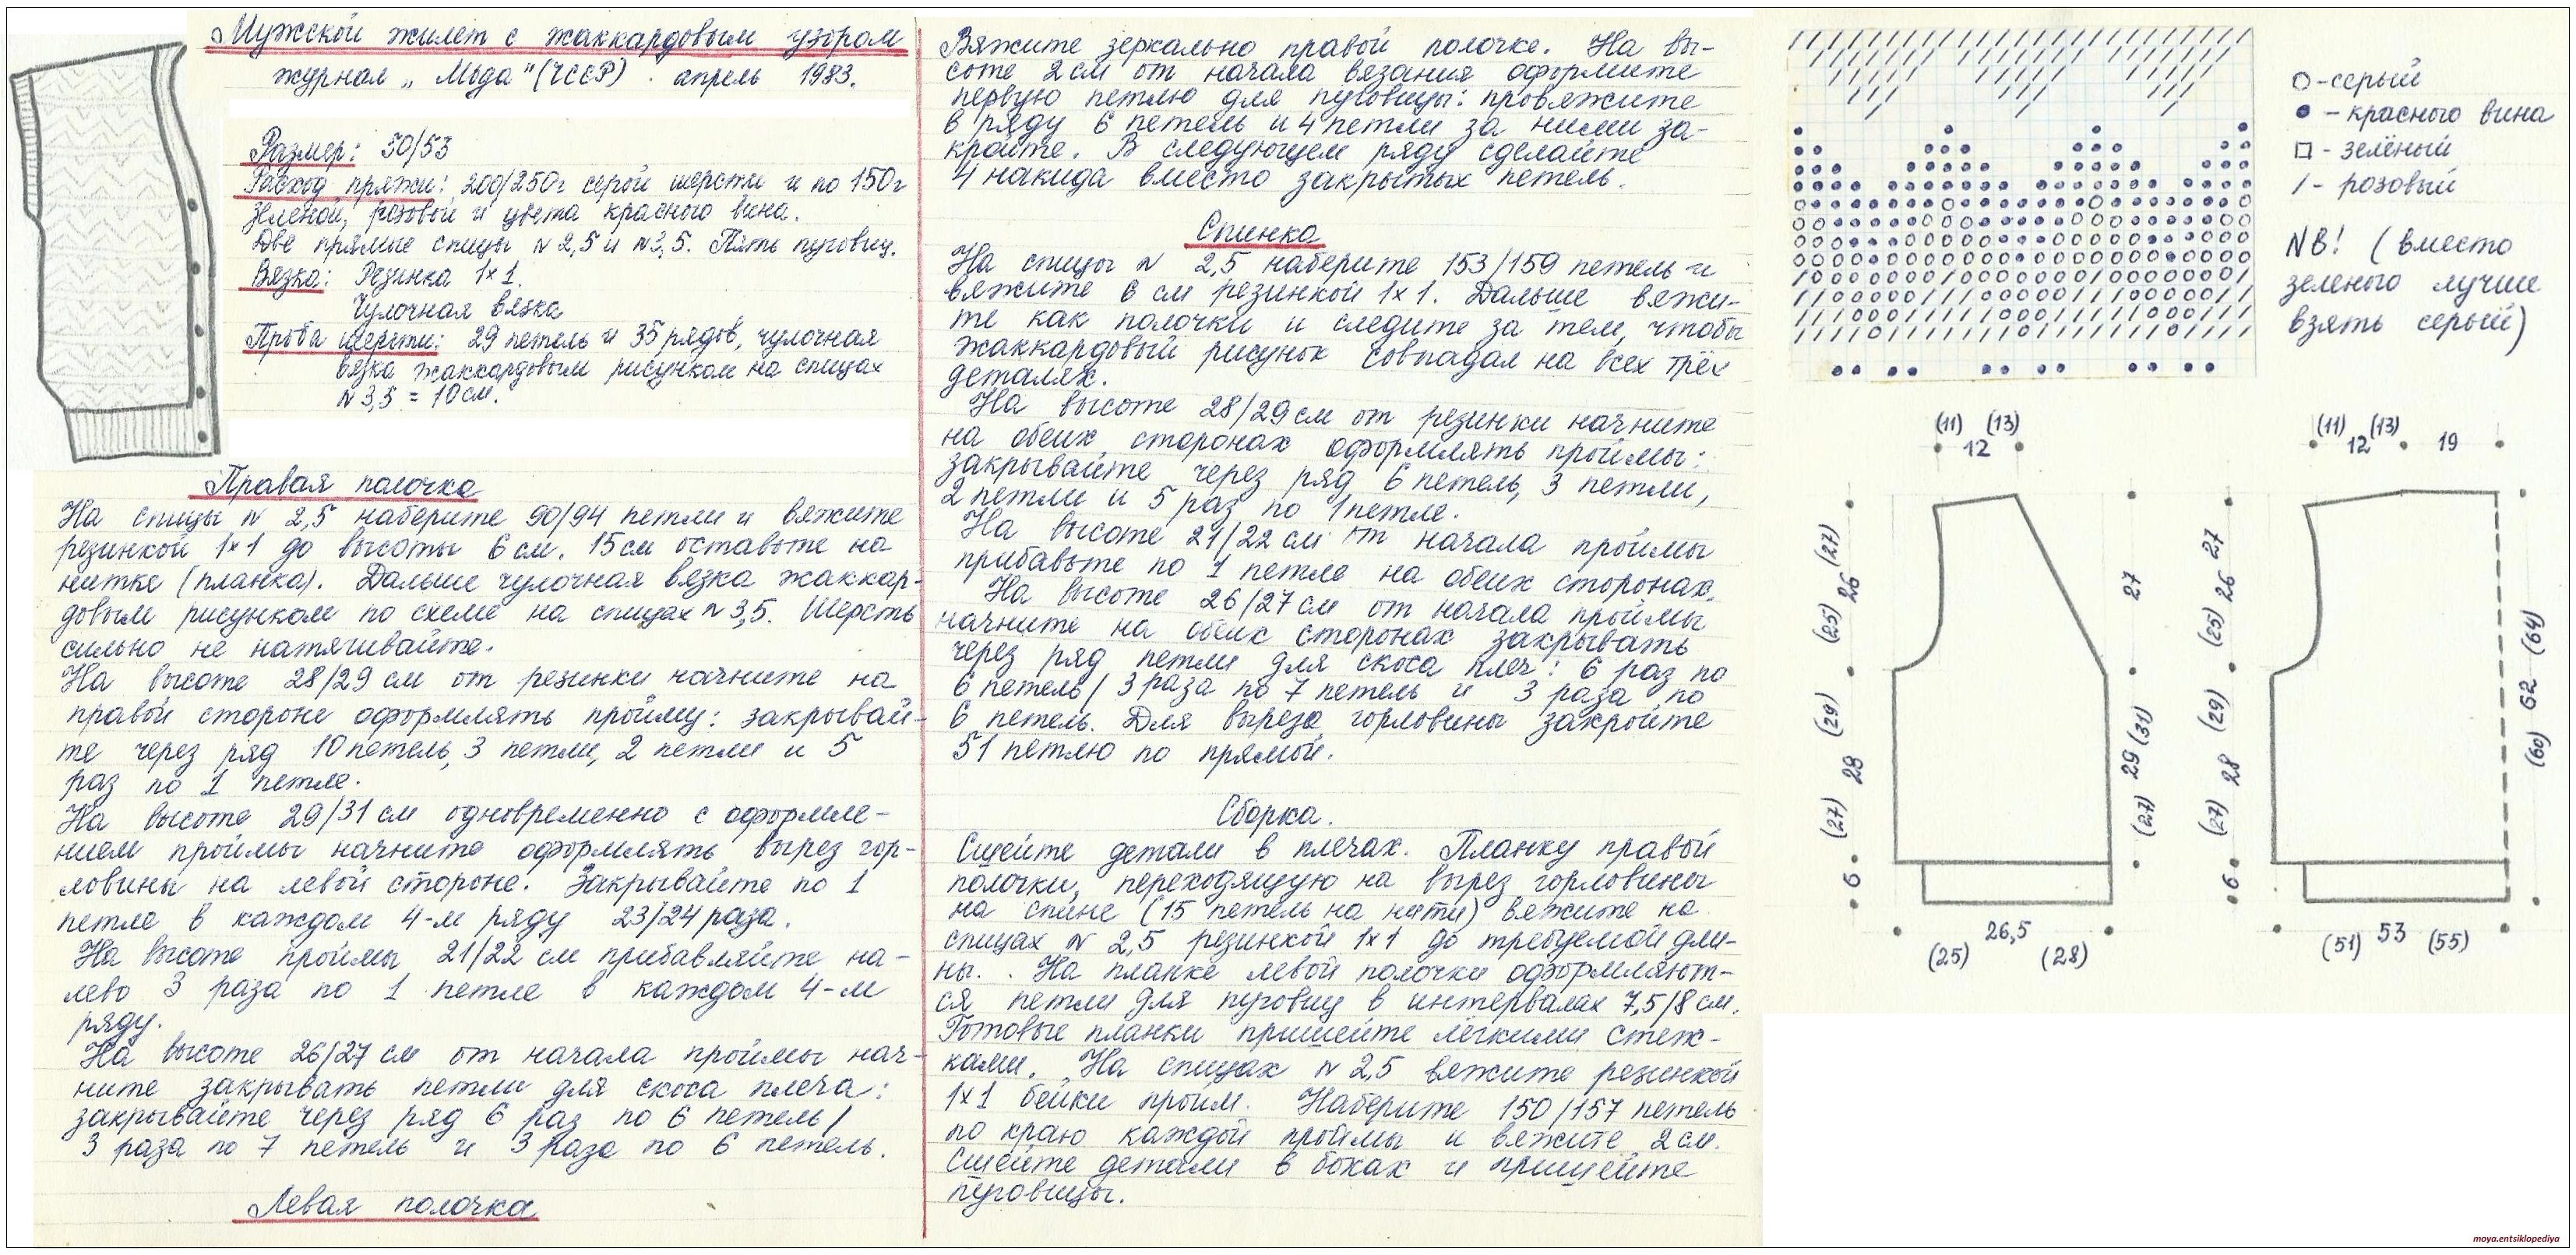 Мужской жилет с жаккардовым узором
журнал „Мода" (ЧССР). апрель 1983.
Размер: 50/53
Расход пряжи: 200/250г серой шерсти и по 150г
зеленой, розовой и цвета красного вина.
Две прямые спицы N 2,5 и N 3,5. Пять пуговиц.
Вязка: Резинка 1×1.
Чулочная вязка
Проба шерсти: 29 петель и 35 рядов, чулочная
вязка жаккардовым рисунком на спицах
N 3,5 = 10 см.
Правая полочка
На спицы N 2,5 наберите 90/94 петли и вяжите
резинкой 1×1 до высоты 6 см. 15 см оставьте на
нитке (планка). Дальше чулочная вязка жаккар-
довым рисунком по схеме на спицах N 3,5. Шерсть
сильно не натягивайте.
На высоте 28/29 см от резинки начните на
правой стороне оформлять пройму: закрывай-
те через ряд 10 петель, 3 петли, 2 петли и 5
раз по 1 петле.
На высоте 29/31 см одновременно с оформле-
нием проймы начните оформлять вырез гор-
ловины на левой стороне. Закрывайте по 1
петле в каждом 4-м ряду 23/24 раза.
На высоте проймы 21/22 см прибавляйте на-
лево 3 раза по 1 петле в каждом 4-м
ряду.
На высоте 26/27 см от начала проймы нач-
ните закрывать петли для скоса плеча:
закрывайте через ряд 6 раз по 6 петель/
3 раза по 7 петель и 3 раза по 6 петель.
Левая полочка
Вяжите зеркально правой полочке. На вы-
соте 2 см от начала вязания оформите
первую петлю для пуговицы: провяжите
в ряду 6 петель и 4 петли за ними за-
кройте. В следующем ряду сделайте
4 накида вместо закрытых петель.
Спинка
На спицы N 2,5 наберите 153/159 петель и
вяжите 6 см резинкой 1×1. Дальше вяжи-
те как полочки и следите за тем, чтобы
жаккардовый рисунок совпадал на всех трёх
деталях.
На высоте 28/29 см от резинки начните
на обеих сторонах оформлять проймы:
закрывайте через ряд 6 петель, 3 петли,
2 петли и 5 раз по 1 петле.
На высоте 21/22 см от начала проймы
прибавьте по 1 петле на обеих сторонах.
На высоте 26/27 см от начала проймы
начните на обеих сторонах закрывать
через ряд петли для скоса плеч: 6 раз по
6 петель/ 3 раза по 7 петель и 3 раза по
6 петель. Для выреза горловины закройте
51 петлю по прямой.
Сборка.
Сшейте детали в плечах. Планку правой
полочки, переходящую на вырез горловины
на спине (15 петель на нити) вяжите на
спицах N 2,5 резинкой 1×1 до требуемой дли-
ны. На планке левой полочки оформляют-
ся петли для пуговиц в интервалах 7,5/8 см.
Готовые планки пришейте лёгкими стеж-
ками. На спицах N 2,5 вяжите резинкой
1×1 бейки пройм. Наберите 150/157 петель
по краю каждой проймы и вяжите 2 см.
Сшейте детали в боках и пришейте
пуговицы.
○ - серый
● - красного вина
□ - зелёный
/ - розовый
NB! (вместо
зеленого лучше
взять серый)
(11) (13)
12
(27)
26
(25)
(29)
28
(27)
6
27
(31)
29
(27)
26,5
(25) (28)
(11) (13)
12 19
27
26
(25)
(29)
28
(27)
6
(64)
62
(60)
53
(51) (55)
moya.entsiklopediya